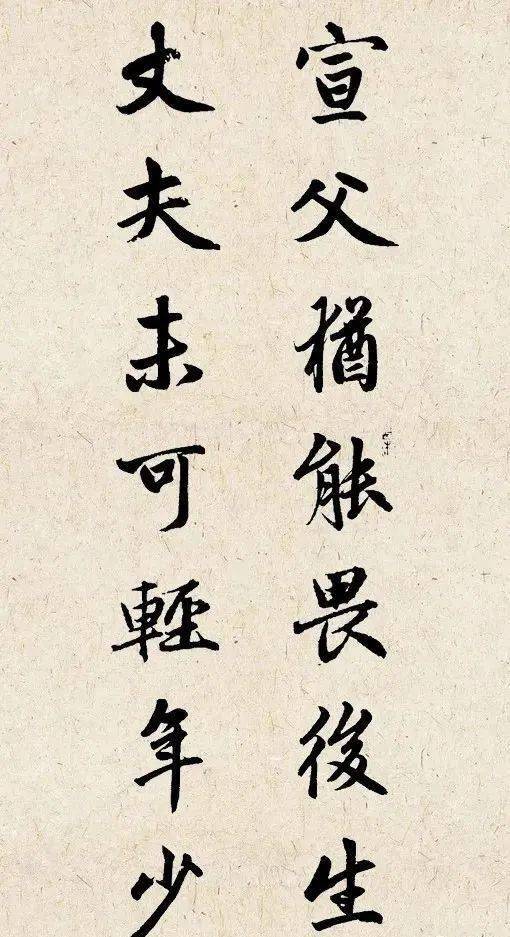 宣父猶能畏後生
丈夫未可輕年少